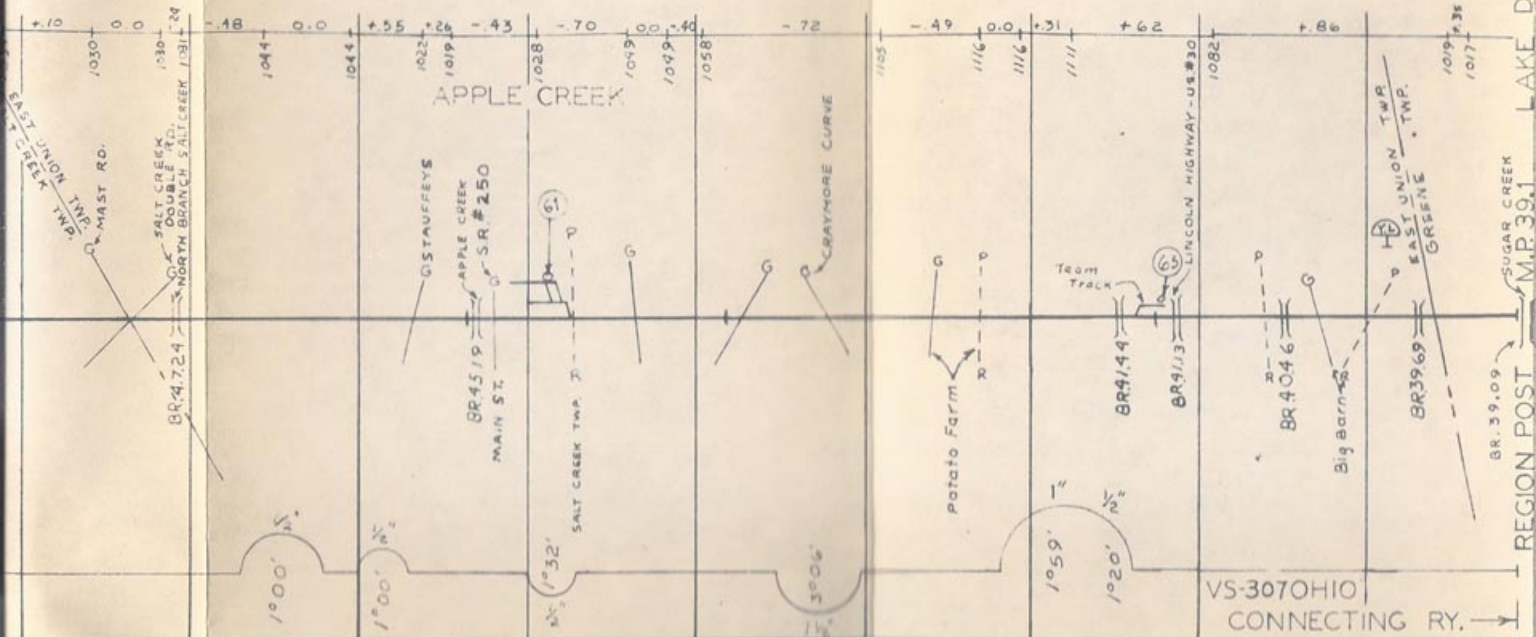 +.10
0.0
-.24
-.48
0.0
+.55
+.26
-.43
-.70
0.0
-.40
-.72
-.49
0.0
+.31
+.62
+.86
+.35
1030
1030
1031
1044
1044
1022
1019
1028
1049
1049
1058
1105
1116
1116
1111
1082
1019
1017
APPLE CREEK
EAST UNION TWP.
CREEK TWP.
MAST RD.
SALT CREEK
DOUBLE RD.
NORTH BRANCH SALT CREEK
BR.47.24
G STAUFFEYS
APPLE CREEK
S.R. #250
G
BR.45.19
MAIN ST.
61
P
P
SALT CREEK TWP.
G
G
G
GRAYMORE CURVE
G
P
P
Potato Farm
Team
Track
63
LINCOLN HIGHWAY-U.S.#30
BR.41.44
BR.41.13
P
P
BR.40.46
G
P
P
Big Barn
EAST UNION TWP.
GREENE TWP.
BR.39.69
SUGAR CREEK
BR.39.09
REGION POST M.P.39.1 LAKE D
1°00'
1°00'
1°32'
3°06'
1°59'
1"
1°20'
1/2"
VS-307OHIO
CONNECTING RY.